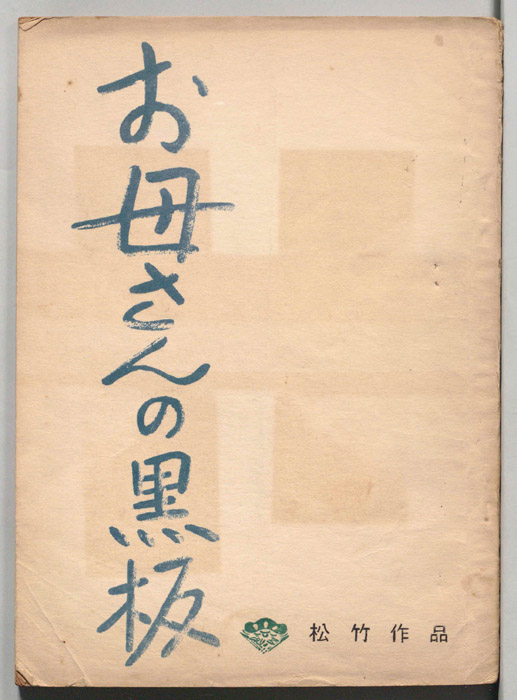 お母さんの黒板
松竹作品